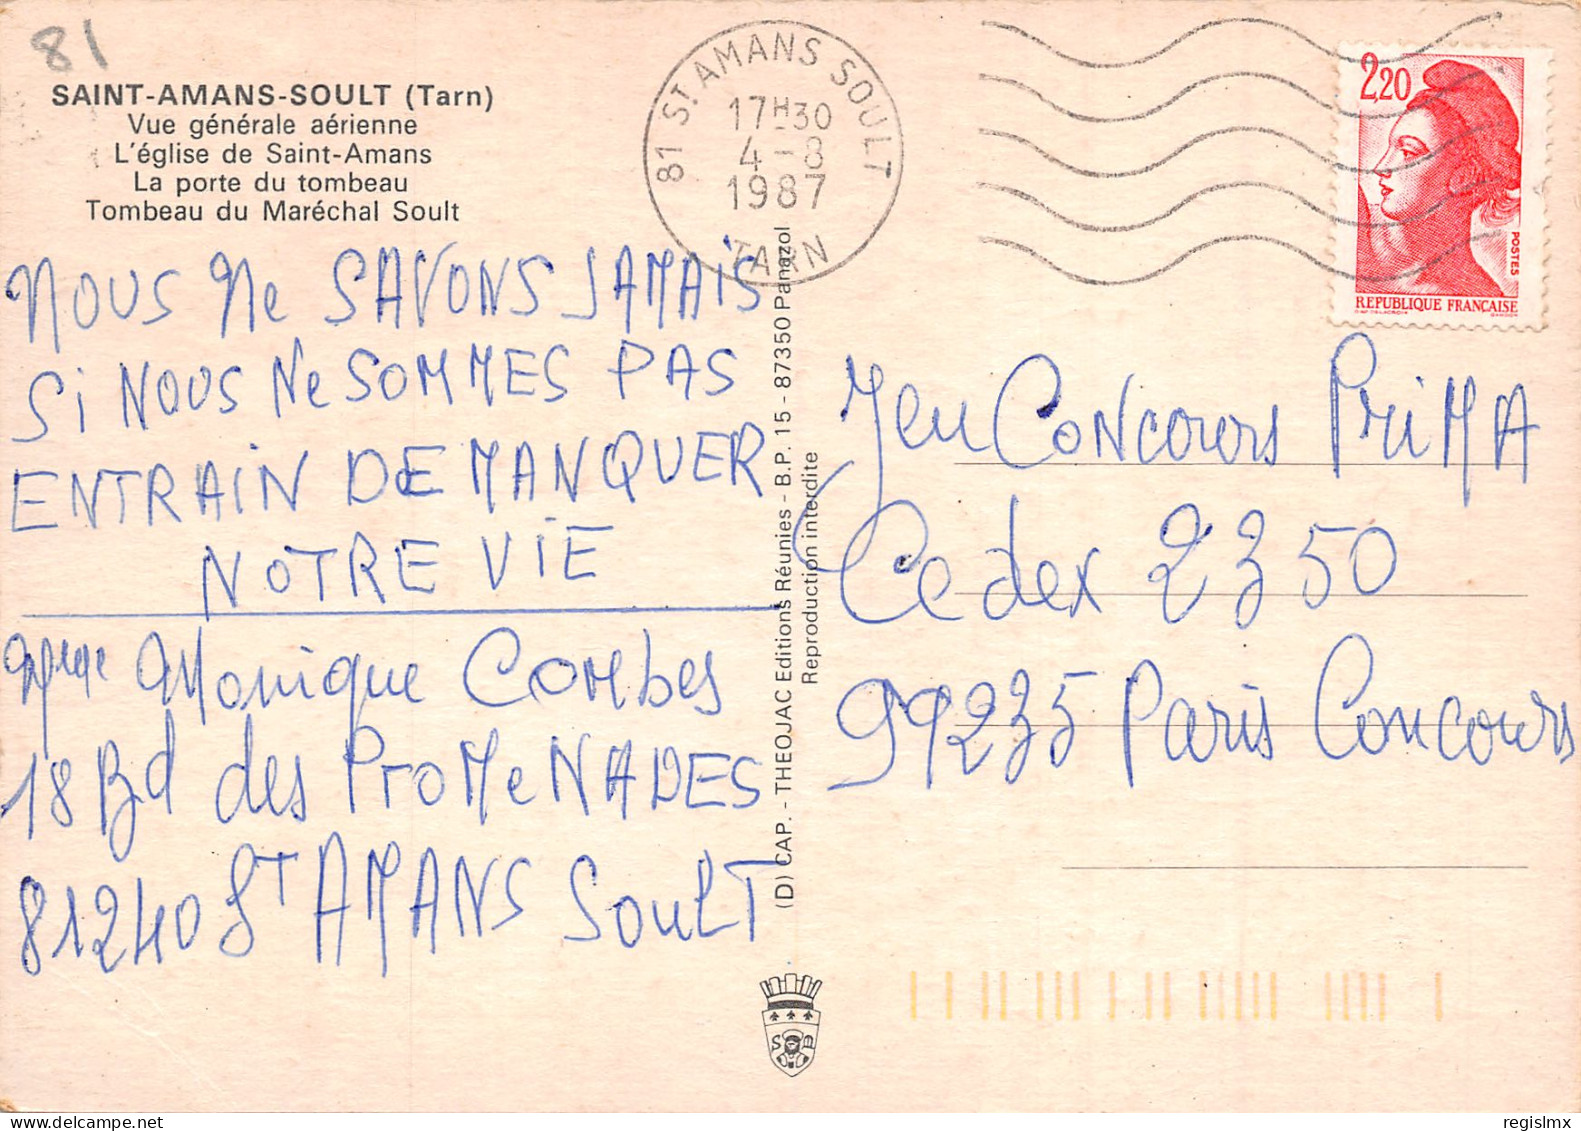 81
SAINT-AMANS-SOULT (Tarn)
Vue générale aérienne
L'église de Saint-Amans
La porte du tombeau
Tombeau du Maréchal Soult
81 ST AMANS SOULT
17H30
4-8
1987
TARN
2,20
POSTES
REPUBLIQUE FRANÇAISE
NOUS Ne SAVONS JAMAIS
Si NOUS Ne SOMMES PAS
ENTRAIN DE MANQUER
NOTRE VIE
Mme Monique Combes
18 Bd des ProMeNADES
81240 ST AMANS SoulT
(D) CAP. - THEOJAC Editions Réunies - B.P. 15 - 87350 Panazol
Reproduction interdite
Jeu Concours PriMA
Cedex 2350
99235 Paris Concours
S B
regislmx